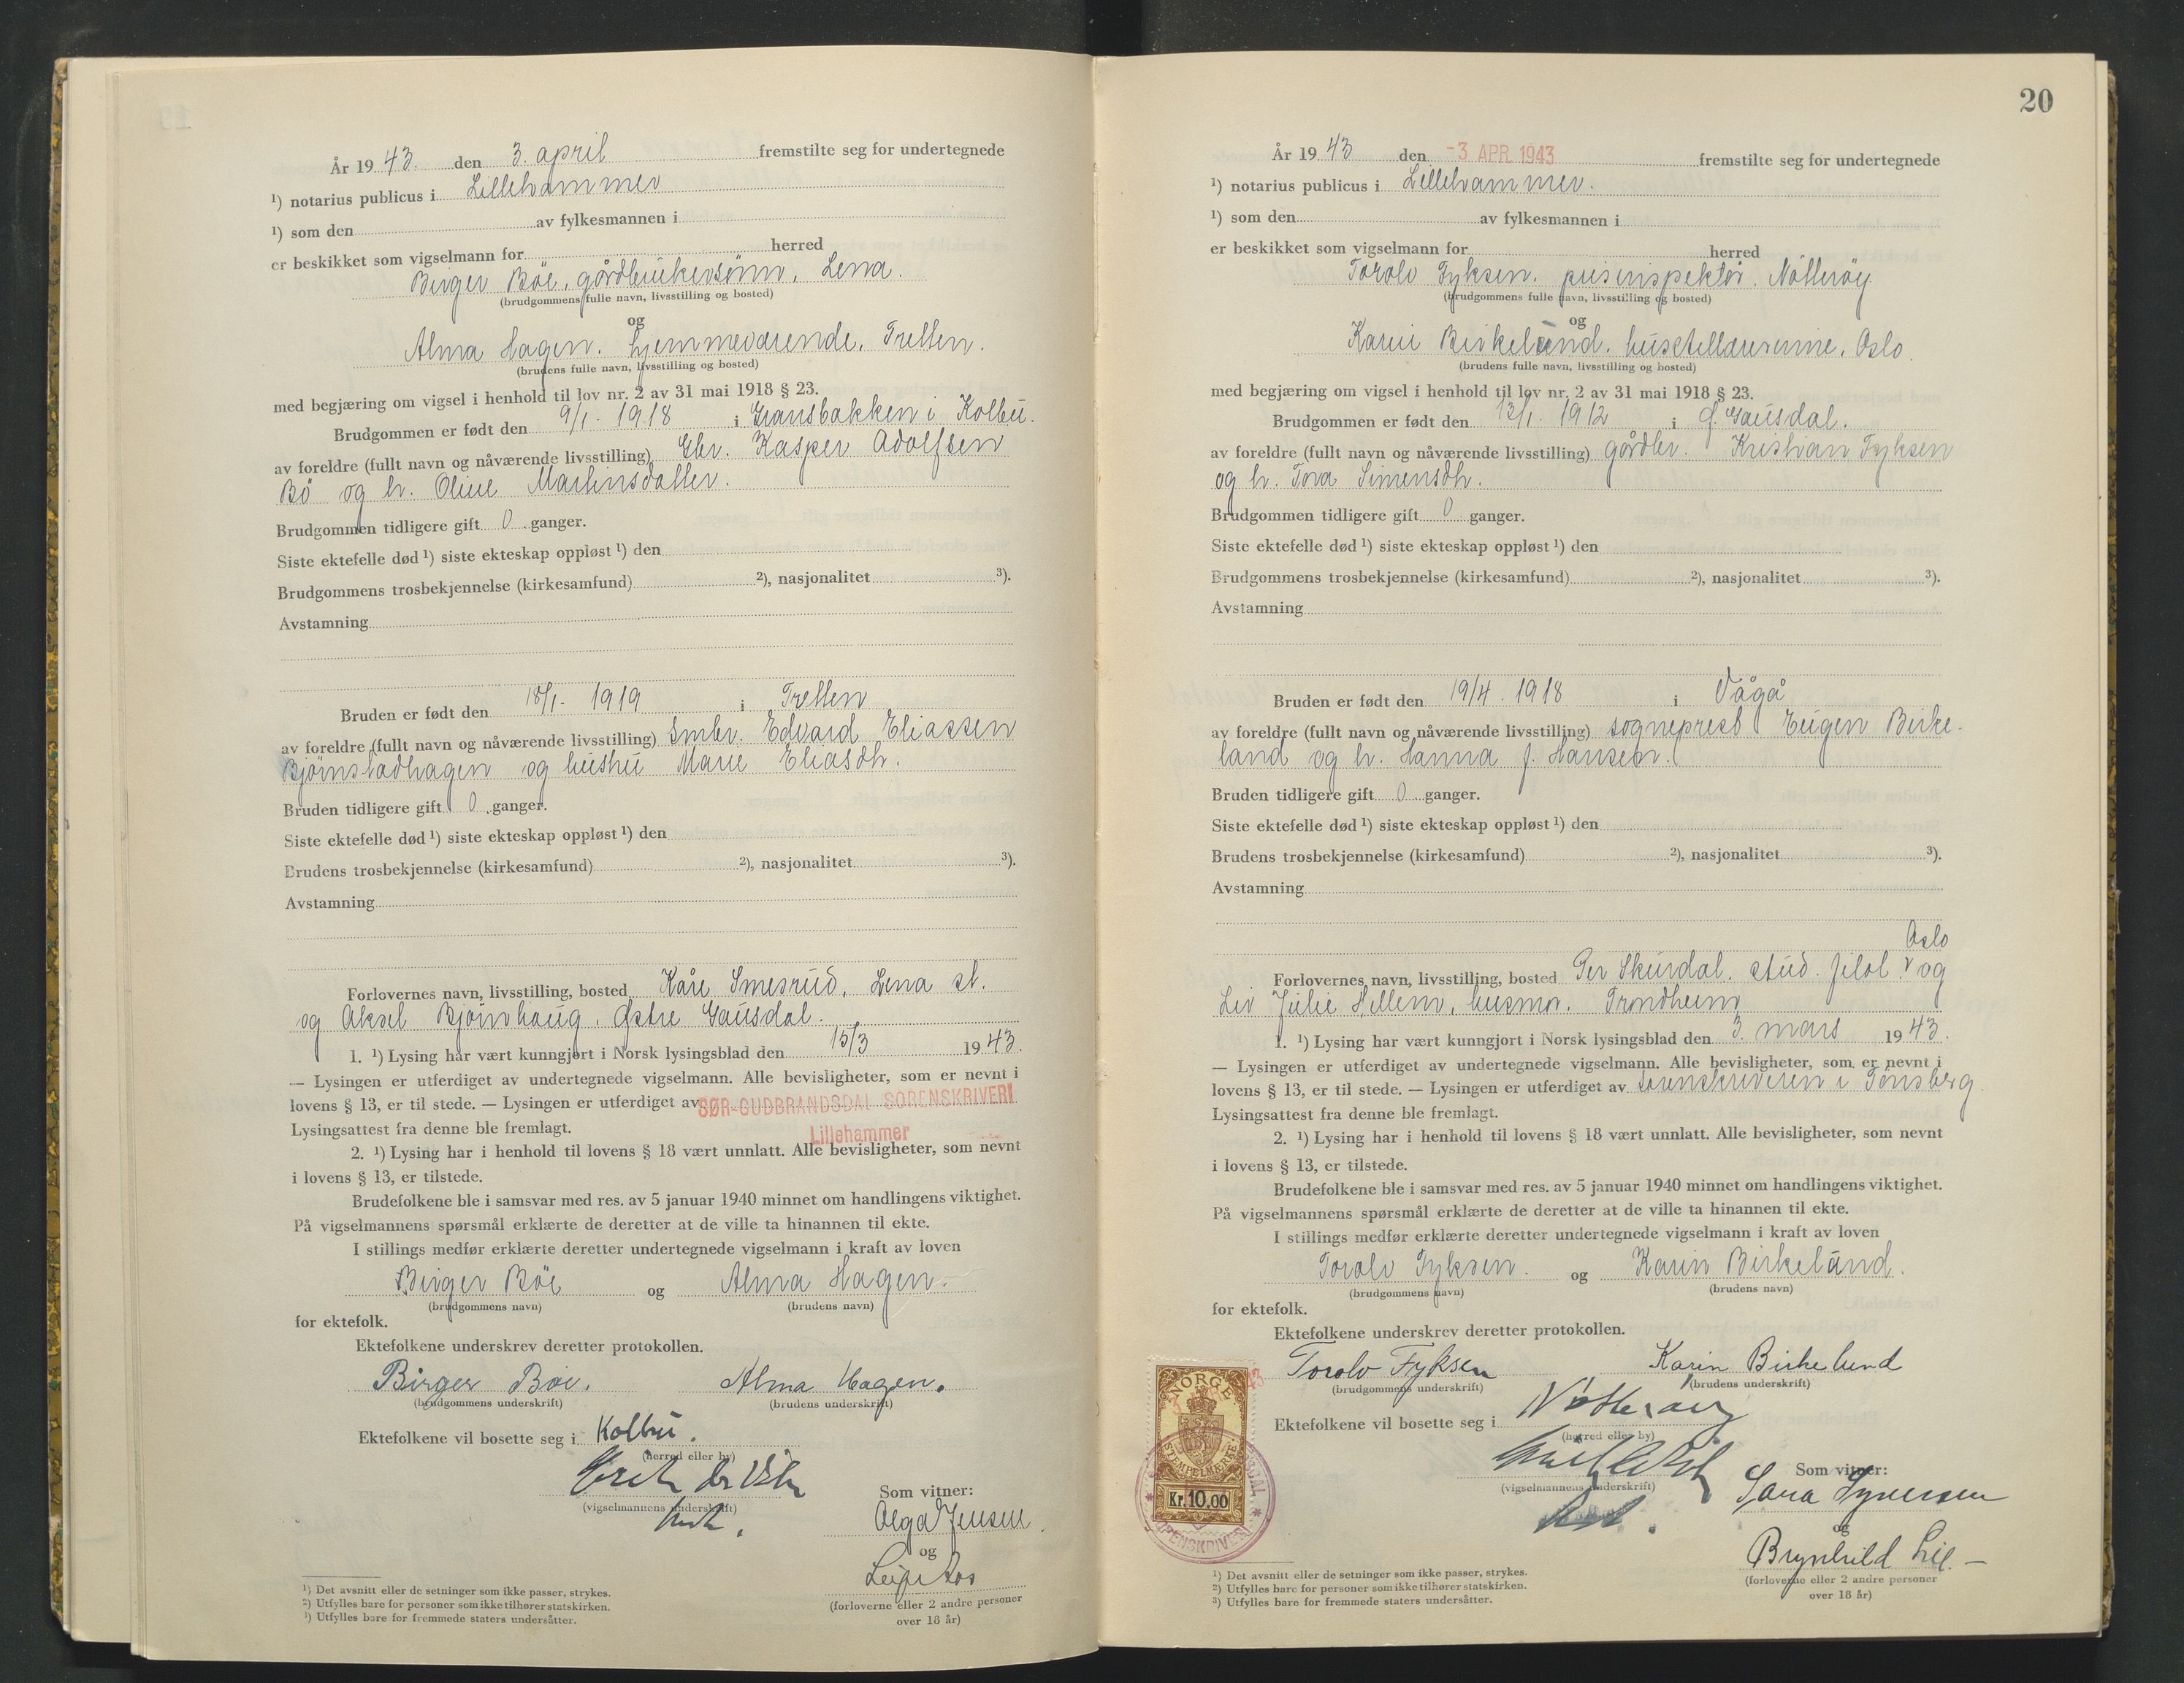 År 1943. den 3. april fremstilte seg for undertegnede
¹) notarius publicus i Lillehammer
¹) som den av fylkesmannen i
er beskikket som vigselmann for herred
Birger Böe, gårdbrukersönn, Lena.
(brudgommens fulle navn, livsstilling og bosted)
og
Alma Hagen. hjemmeværende, Tretten.
(brudens fulle navn, livsstilling og bosted)
med begjæring om vigsel i henhold til lov nr. 2 av 31 mai 1918 § 23.
Brudgommen er født den 9/1. 1918 i Gransbakken i Kolbu.
av foreldre (fullt navn og nåværende livsstilling) Gbr. Kasper Adolfsen
Bö og h. Oline Martinsdatter.
Brudgommen tidligere gift 0 ganger.
Siste ektefelle død ¹) siste ekteskap oppløst ¹) den
Brudgommens trosbekjennelse (kirkesamfund) ²), nasjonalitet ³).
Avstamning
Bruden er født den 18/1. 1919 i Tretten
av foreldre (fullt navn og nåværende livsstilling) Smbr. Edvard Eliassen
Bjørnstadhagen og hushu Marie Eliasdtr.
Bruden tidligere gift 0 ganger.
Siste ektefelle død ¹) siste ekteskap oppløst ¹) den
Brudens trosbekjennelse (kirkesamfund) ²), nasjonalitet ³).
Avstamning
Forlovernes navn, livsstilling, bosted Kåre Smesrud, Lena st.
og Aksel Bjørnhaug, Østre Gausdal.
1. ¹) Lysing har vært kunngjort i Norsk lysingsblad den 15/3 1943.
— Lysingen er utferdiget av undertegnede vigselmann. Alle bevisligheter, som er nevnt i
lovens § 13, er til stede. — Lysingen er utferdiget av SØR-GUDBRANDSDAL SORENSKRIVERI
Lillehammer
Lysingsattest fra denne ble fremlagt.
2. ¹) Lysing har i henhold til lovens § 18 vært unnlatt. Alle bevisligheter, som nevnt
i lovens § 13, er tilstede.
Brudefolkene ble i samsvar med res. av 5 januar 1940 minnet om handlingens viktighet.
På vigselmannens spørsmål erklærte de deretter at de ville ta hinannen til ekte.
I stillings medfør erklærte deretter undertegnede vigselmann i kraft av loven
Birger Böe og Alma Hagen.
(brudgommens navn) (brudens navn)
for ektefolk.
Ektefolkene underskrev deretter protokollen.
Birger Böe. Alma Hagen.
(brudgommens underskrift) (brudens underskrift)
Ektefolkene vil bosette seg i Kolbu.
(herred eller by)
(vigselmannens underskrift)
Som vitner:
Olga Jensen.
og
(forloverne eller 2 andre personer
over 18 år)
¹) Det avsnitt eller de setninger som ikke passer, strykes.
²) Utfylles bare for personer som ikke tilhører statskirken.
³) Utfylles bare for fremmede staters undersåtter.
20
År 1943 den -3 APR. 1943 fremstilte seg for undertegnede
¹) notarius publicus i Lillehammer.
¹) som den av fylkesmannen i
er beskikket som vigselmann for herred
Torolv Fyksen. prisinspektör. Nötteröy
(brudgommens fulle navn, livsstilling og bosted)
og
Karin Birkelund. husstellærerinne, Oslo.
(brudens fulle navn, livsstilling og bosted)
med begjæring om vigsel i henhold til lov nr. 2 av 31 mai 1918 § 23.
Brudgommen er født den 13/1. 1912 i Ø. Gausdal.
av foreldre (fullt navn og nåværende livsstilling) gårdbr. Kristian Fyksen
og h. Tora Simensdtr.
Brudgommen tidligere gift 0 ganger.
Siste ektefelle død ¹) siste ekteskap oppløst ¹) den
Brudgommens trosbekjennelse (kirkesamfund) ²), nasjonalitet ³).
Avstamning
Bruden er født den 19/4. 1918 i Vågå
av foreldre (fullt navn og nåværende livsstilling) sogneprest Eugen Birke-
land og h. Hanna f. Hansen.
Bruden tidligere gift 0 ganger.
Siste ektefelle død ¹) siste ekteskap oppløst ¹) den
Brudens trosbekjennelse (kirkesamfund) ²), nasjonalitet ³).
Avstamning
Oslo
Forlovernes navn, livsstilling, bosted Per Skurdal. stud. filol. og
Liv Julie Hellem, husmor. Trondheim
1. ¹) Lysing har vært kunngjort i Norsk lysingsblad den 3. mars 1943.
— Lysingen er utferdiget av undertegnede vigselmann. Alle bevisligheter, som er nevnt i
lovens § 13, er til stede. — Lysingen er utferdiget av sorenskriveren i Tönsberg
Lysingsattest fra denne ble fremlagt.
2. ¹) Lysing har i henhold til lovens § 18 vært unnlatt. Alle bevisligheter, som nevnt
i lovens § 13, er tilstede.
Brudefolkene ble i samsvar med res. av 5 januar 1940 minnet om handlingens viktighet.
På vigselmannens spørsmål erklærte de deretter at de ville ta hinannen til ekte.
I stillings medfør erklærte deretter undertegnede vigselmann i kraft av loven
Torolv Fyksen. og Karin Birkelund.
(brudgommens navn) (brudens navn)
for ektefolk.
Ektefolkene underskrev deretter protokollen.
Torolv Fyksen Karin Birkelund
(brudgommens underskrift) (brudens underskrift)
Ektefolkene vil bosette seg i Nötteröy
(herred eller by)
(vigselmannens underskrift)
Som vitner:
Sara Syversen
og
Brynhild Lie.
(forloverne eller 2 andre personer
over 18 år)
NORGE
STEMPELMERKE.
Kr. 10.00
¹) Det avsnitt eller de setninger som ikke passer, strykes.
²) Utfylles bare for personer som ikke tilhører statskirken.
³) Utfylles bare for fremmede staters undersåtter.